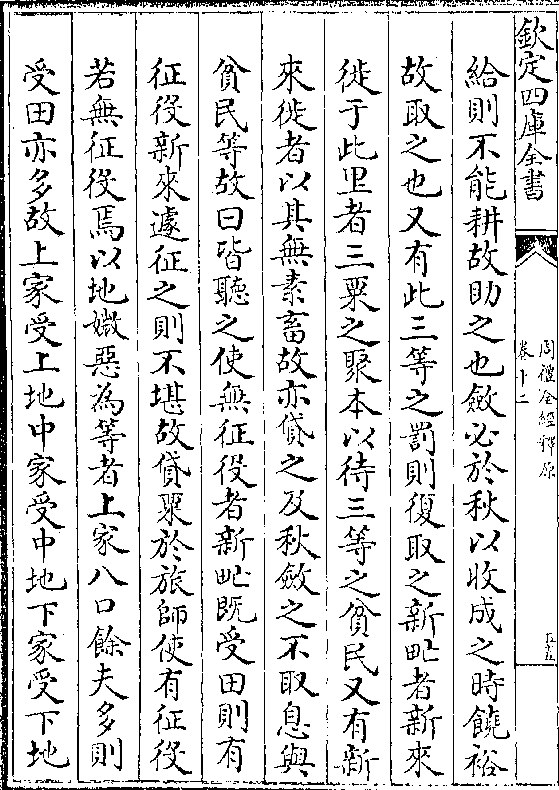 欽定四庫全書
周禮全經釋原
卷十二
五五
給則不能耕故助之也斂必於秋以收成之時饒裕
故取之也又有此三等之罰則復取之新甿者新來
徙于此里者三粟之聚本以待三等之貧民又有新
來徙者以其無素畜故亦貸之及秋斂之不取息與
貧民等故曰皆聽之使無征役者新甿既受田則有
征役新來遽征之則不堪故貸聚於旅師使有征役
若無征役焉以地媺惡為等者上家八口餘夫多則
受田亦多故上家受上地中家受中地下家受下地